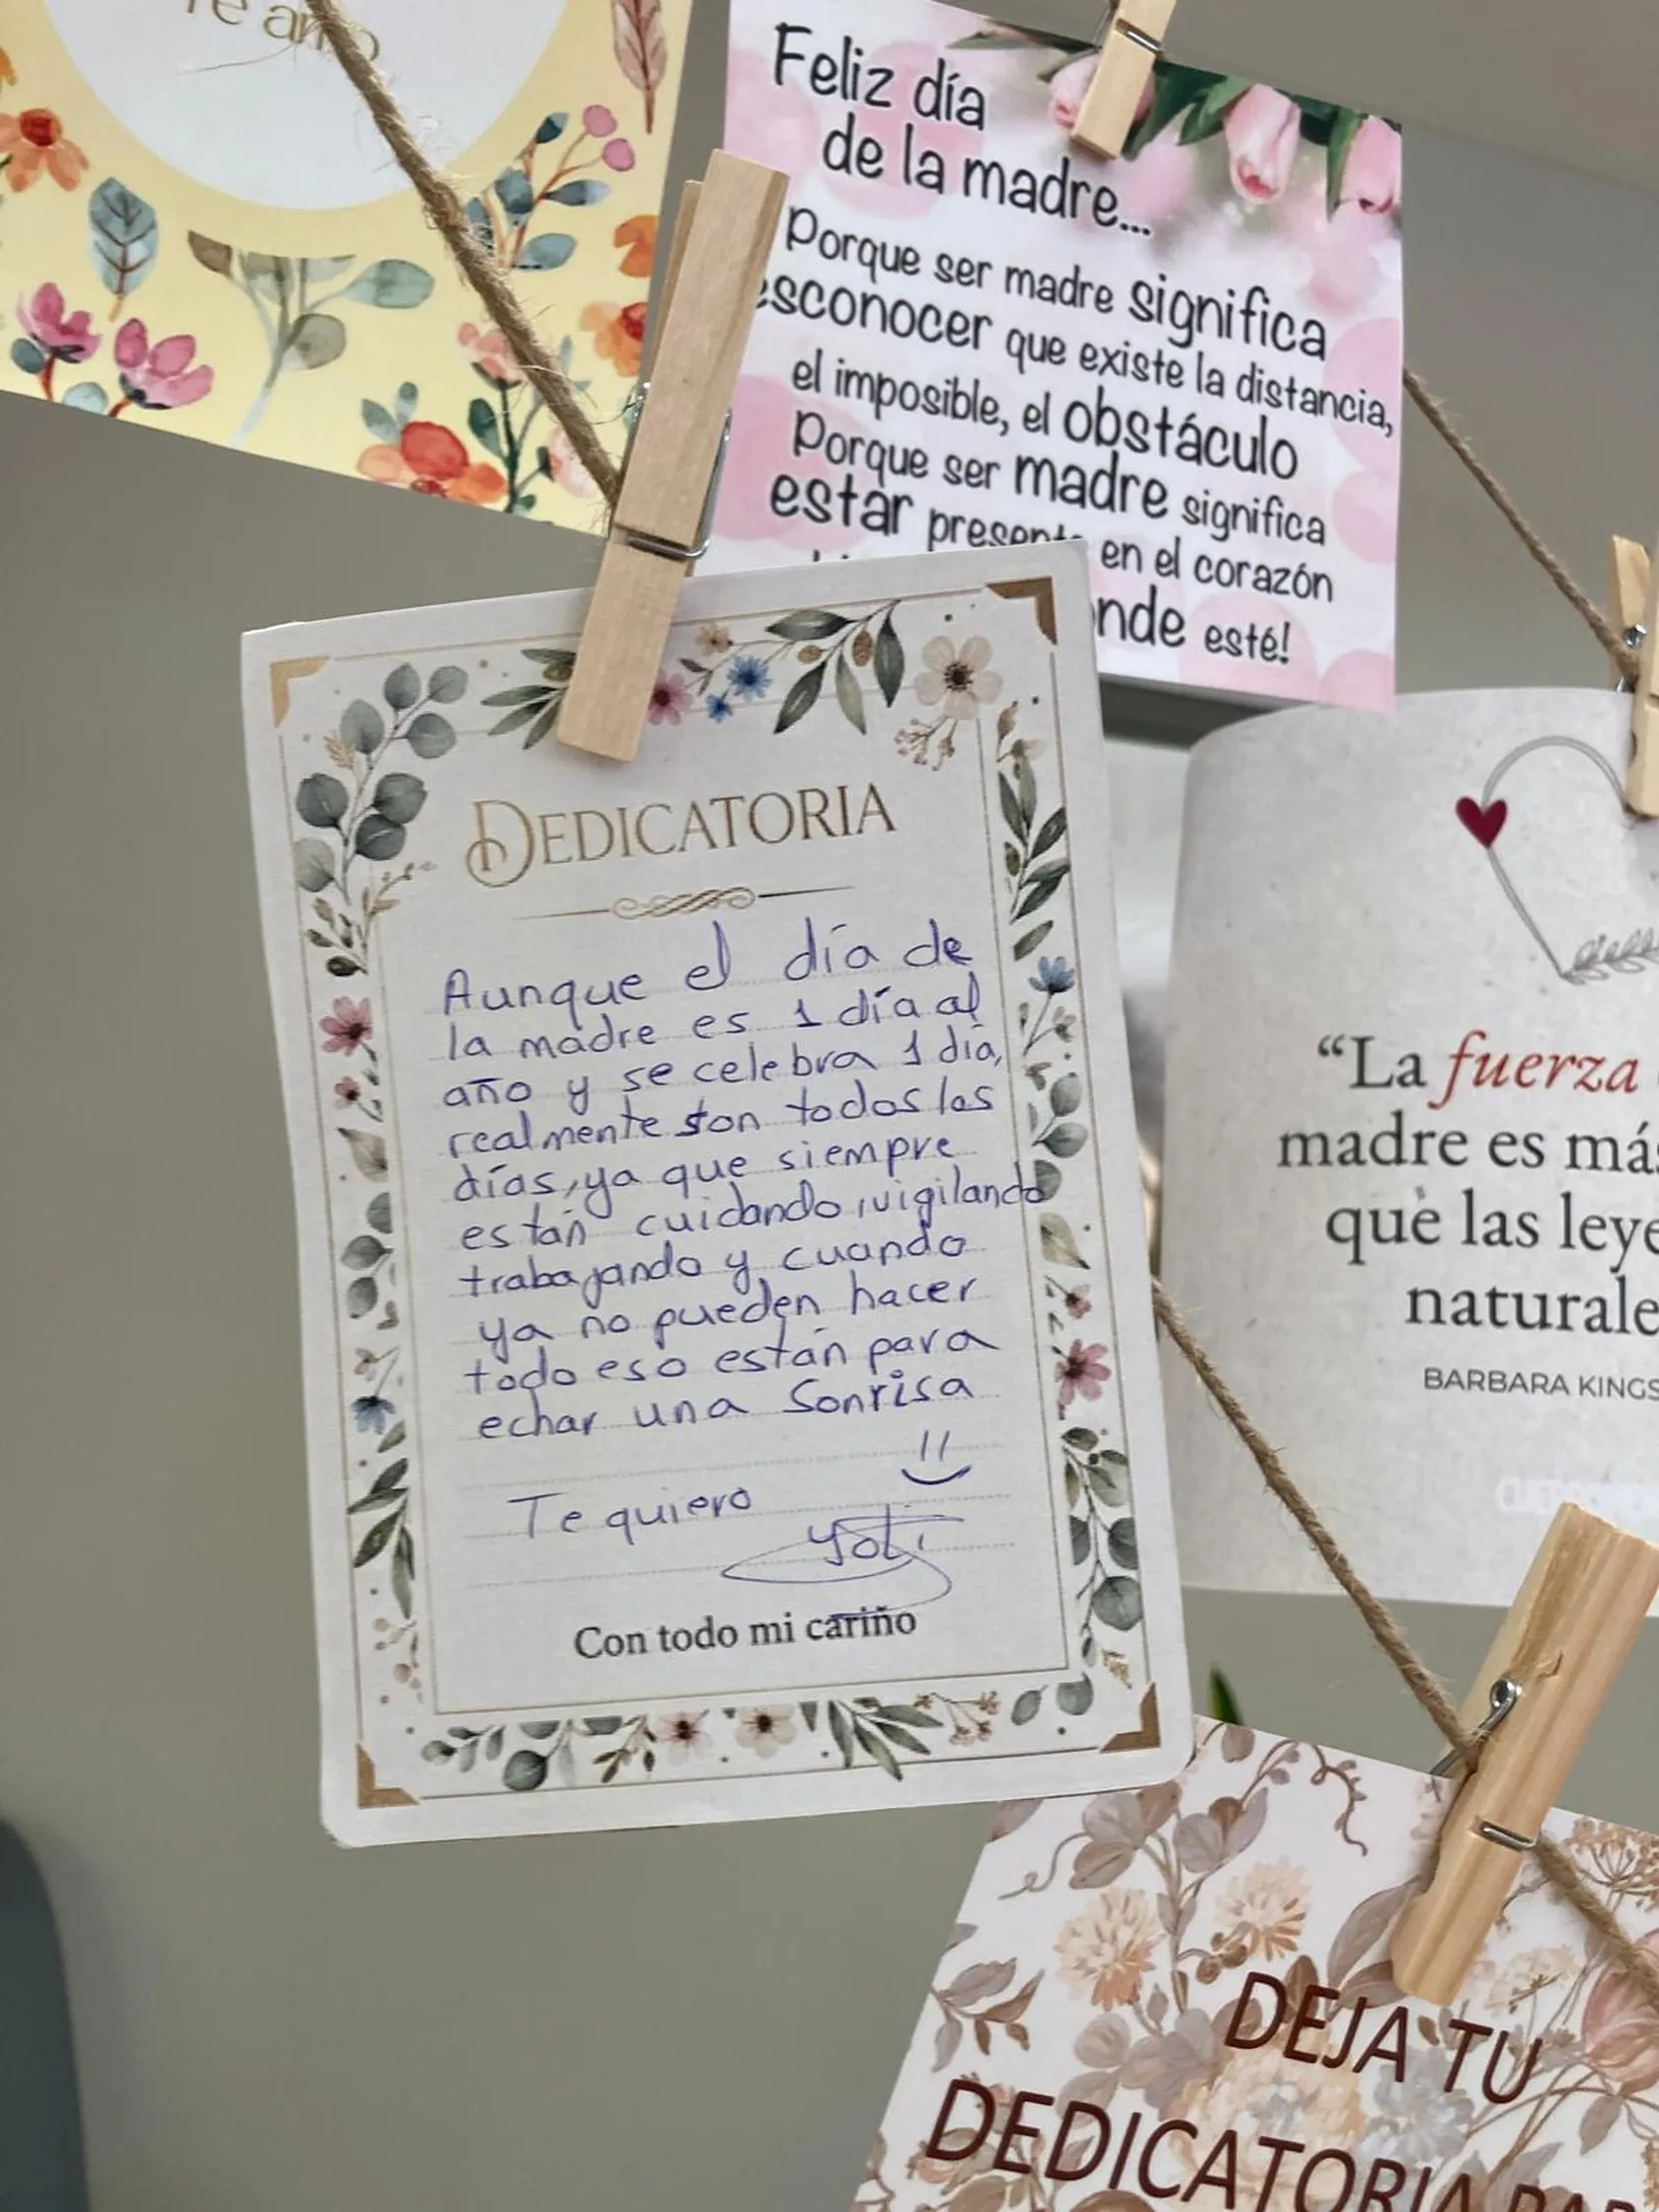 Te amo
Feliz día
de la madre...
Porque ser madre significa
esconocer que existe la distancia,
el imposible, el obstáculo
Porque ser madre significa
estar presente en el corazón
nde esté!
DEDICATORIA
Aunque el día de
la madre es 1 día al
año y se celebra 1 día,
realmente son todos los
días, ya que siempre
están cuidando, vigilando
trabajando y cuando
ya no pueden hacer
todo eso están para
echar una Sonrisa
Te quiero
Yoli
Con todo mi cariño
“La fuerza
madre es más
que las leye
naturale
BARBARA KINGS
DEJA TU
DEDICATORIA PAR